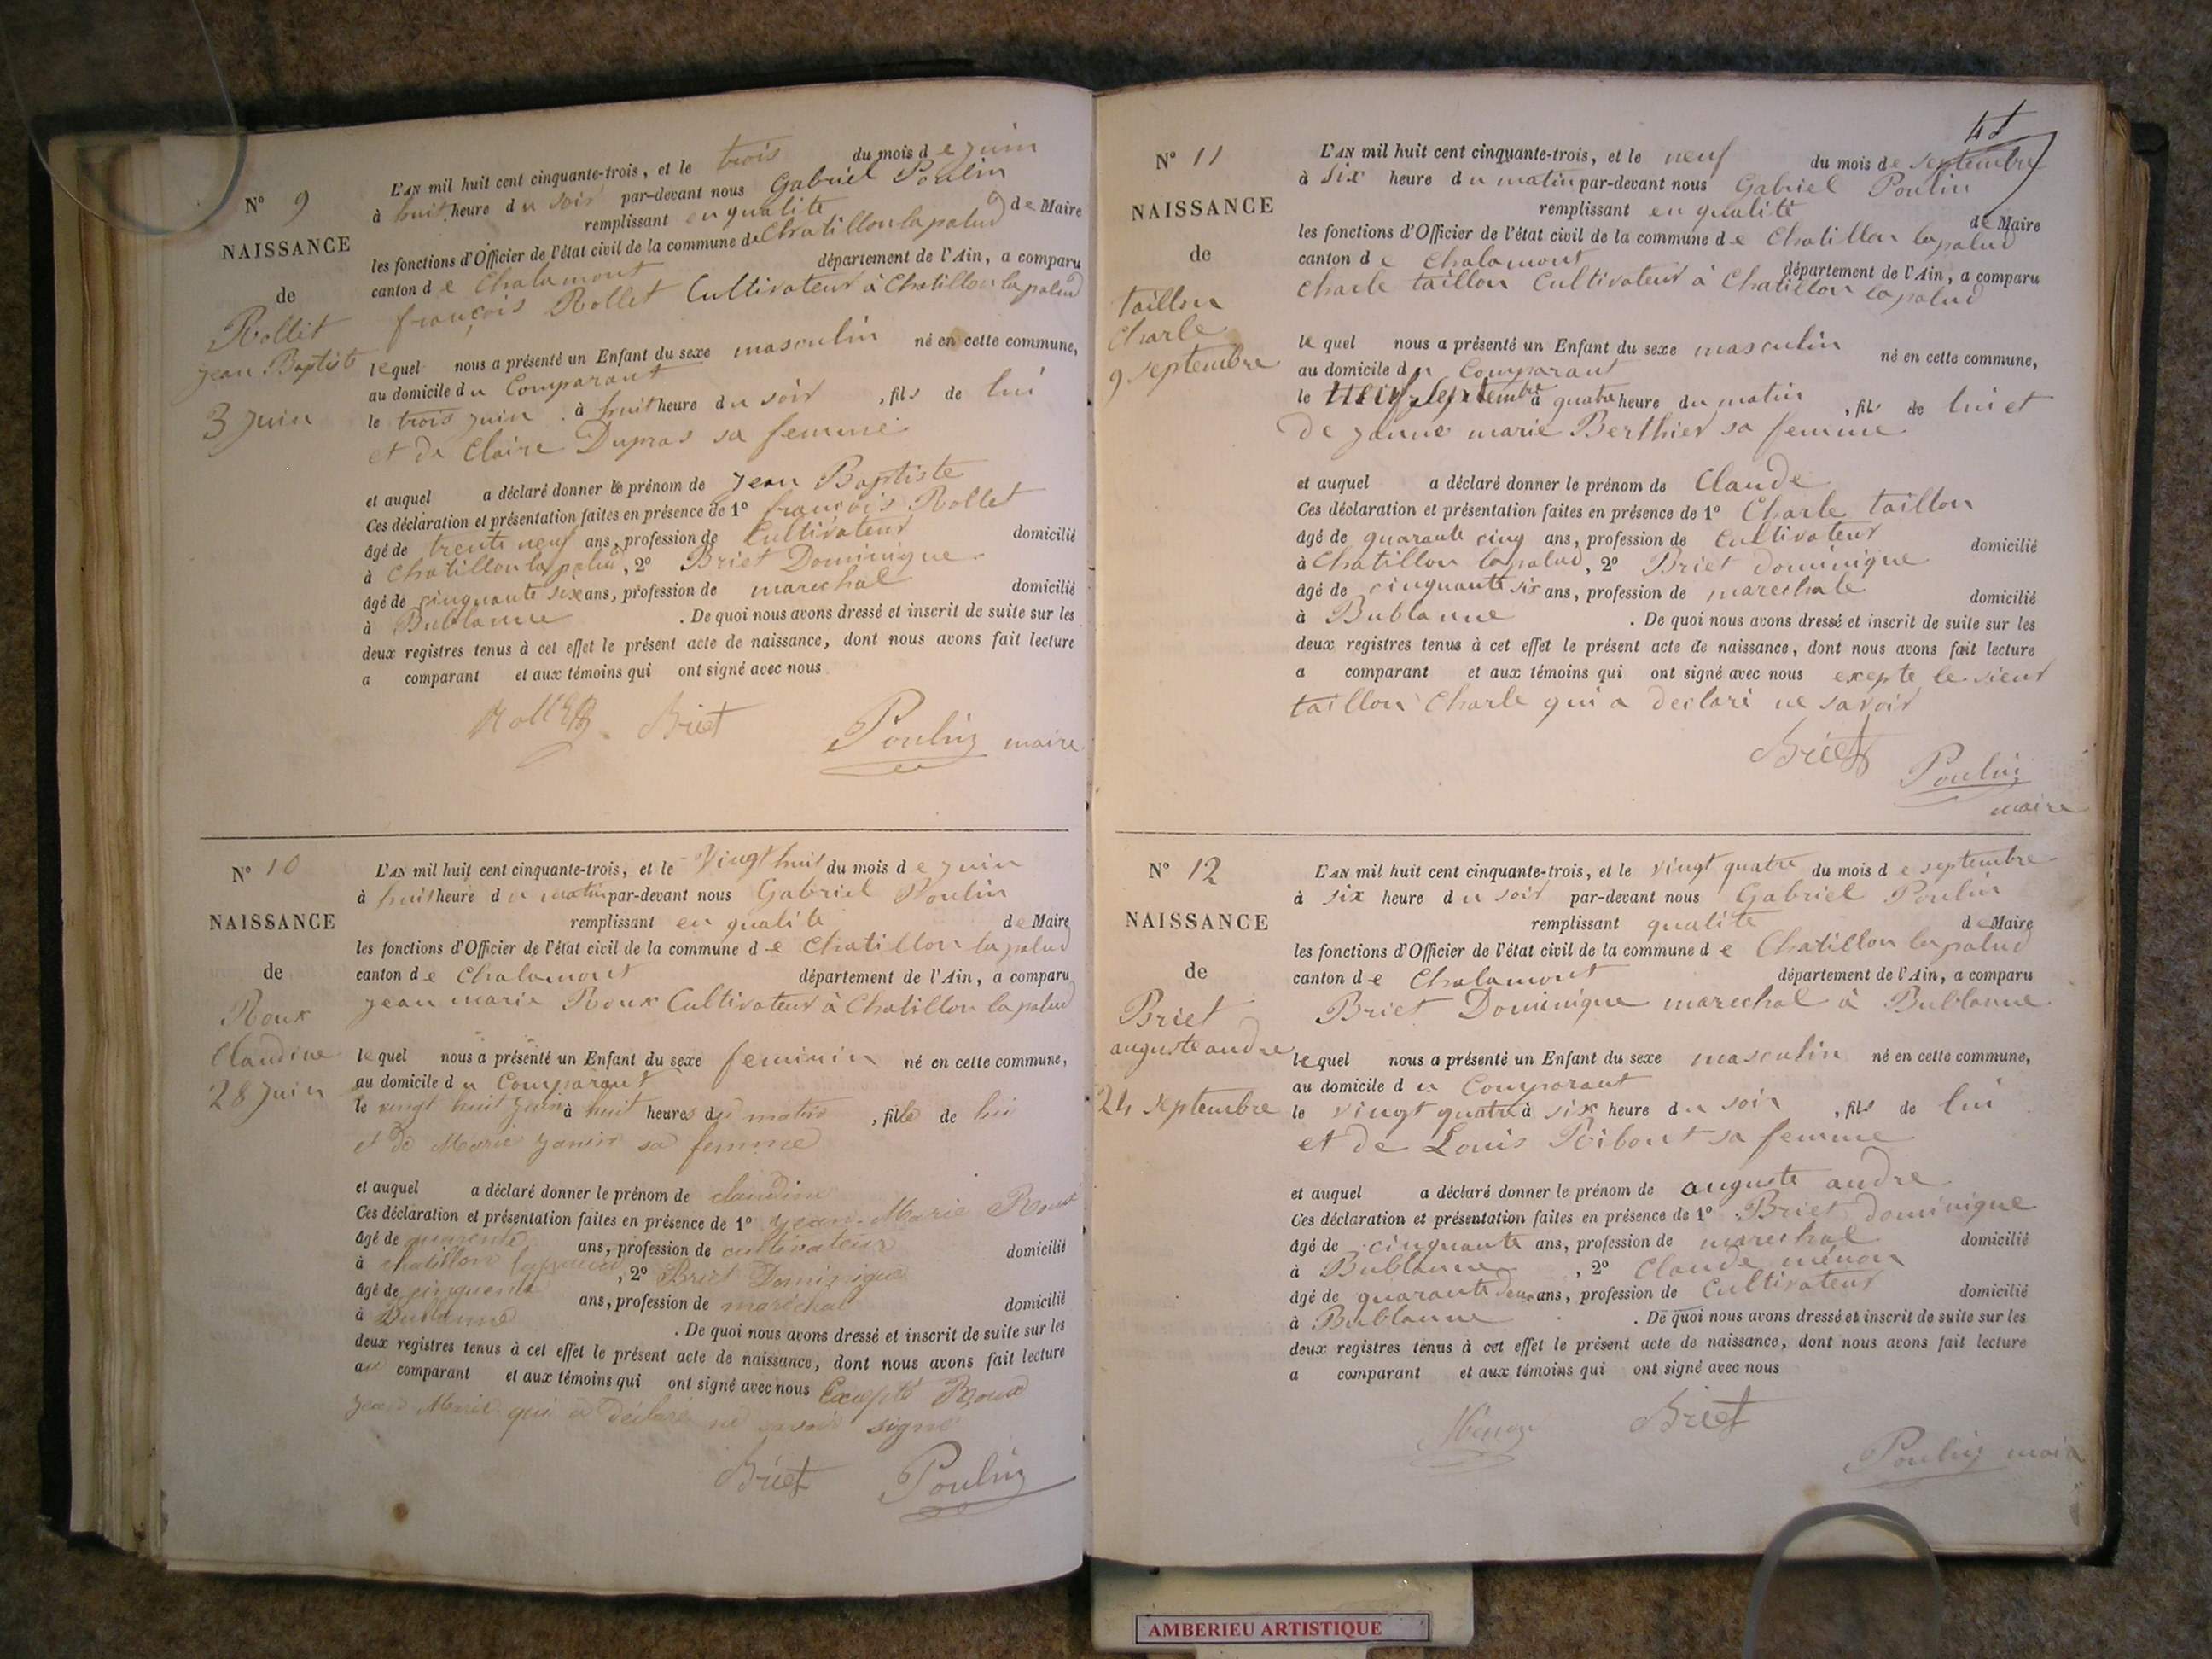 Nº 9
NAISSANCE
de
Rollet
Jean Baptiste
3 Juin
L'AN mil huit cent cinquante-trois, et le trois du mois de Juin
à huit heure du soir par-devant nous Gabriel Poulin
remplissant en qualité de Maire
les fonctions d'Officier de l'état civil de la commune de Chatillon la palud
canton de Chalamont département de l'Ain, a comparu
françois Rollet Cultivateur à Chatillon la palud
lequel nous a présenté un Enfant du sexe masculin né en cette commune,
au domicile du Comparant
le trois juin à huit heure du soir , fils de lui
et de Claire Dupras sa femme
et auquel a déclaré donner le prénom de Jean Baptiste
Ces déclaration et présentation faites en présence de 1º françois Rollet
âgé de trente neuf ans, profession de Cultivateur domicilié
à Chatillon la palud, 2º Briet Dominique
âgé de cinquante six ans, profession de marechal domicilié
à Bublanne . De quoi nous avons dressé et inscrit de suite sur les
deux registres tenus à cet effet le présent acte de naissance, dont nous avons fait lecture
a comparant et aux témoins qui ont signé avec nous
Rollet Briet Poulin maire
Nº 10
NAISSANCE
de
Roux
Claudine
28 Juin
L'AN mil huit cent cinquante-trois, et le Vingt huit du mois de Juin
à huit heure du matin par-devant nous Gabriel Poulin
remplissant en qualité de Maire
les fonctions d'Officier de l'état civil de la commune de Chatillon la palud
canton de Chalamont département de l'Ain, a comparu
Jean marie Roux Cultivateur à Chatillon la palud
lequel nous a présenté un Enfant du sexe feminin né en cette commune,
au domicile du Comparant
le vingt huit Juin à huit heures du matin , fille de lui
et de Marie Janin sa femme
et auquel a déclaré donner le prénom de claudine
Ces déclaration et présentation faites en présence de 1º Jean-Marie Roux
âgé de quarente ans, profession de cultivateur domicilié
à chatillon la palud, 2º Briet Dominique
âgé de cinquente ans, profession de maréchal domicilié
à Bublanne . De quoi nous avons dressé et inscrit de suite sur les
deux registres tenus à cet effet le présent acte de naissance, dont nous avons fait lecture
au comparant et aux témoins qui ont signé avec nous Excepté Roux
Jean Marie qui a déclaré ne savoir signé
Briet Poulin
Nº 11
NAISSANCE
de
taillon
Charle
9 septembre
L'AN mil huit cent cinquante-trois, et le neuf du mois de septembre
à six heure du matin par-devant nous Gabriel Poulin
remplissant en qualité de Maire
les fonctions d'Officier de l'état civil de la commune de Chatillon la palud
canton de Chalamont département de l'Ain, a comparu
Charle taillon Cultivateur à Chatillon la palud
lequel nous a présenté un Enfant du sexe masculin né en cette commune,
au domicile du Comparant
le neuf septembre à quatre heure du matin , fils de lui et
de Janne marie Berthier sa femme
et auquel a déclaré donner le prénom de Claude
Ces déclaration et présentation faites en présence de 1º Charle taillon
âgé de quarante cinq ans, profession de Cultivateur domicilié
à Chatillon la palud, 2º Briet dominique
âgé de cinquante six ans, profession de marechale domicilié
à Bublanne . De quoi nous avons dressé et inscrit de suite sur les
deux registres tenus à cet effet le présent acte de naissance, dont nous avons fait lecture
a comparant et aux témoins qui ont signé avec nous excepte le sieur
taillon Charle qui a declaré ne savoir
Briet Poulin
maire
Nº 12
NAISSANCE
de
Briet
auguste andre
24 septembre
L'AN mil huit cent cinquante-trois, et le vingt quatre du mois de septembre
à six heure du soir par-devant nous Gabriel Poulin
remplissant qualité de Maire
les fonctions d'Officier de l'état civil de la commune de Chatillon la palud
canton de Chalamont département de l'Ain, a comparu
Briet Dominique marechal à Bublanne
lequel nous a présenté un Enfant du sexe masculin né en cette commune,
au domicile du Comparant
le vingt quatre à six heure du soir , fils de lui
et de Louis Ribout sa femme
et auquel a déclaré donner le prénom de auguste andre
Ces déclaration et présentation faites en présence de 1º Briet dominique
âgé de cinquante ans, profession de marechal domicilié
à Bublanne , 2º Claude ménon
âgé de quarante deux ans, profession de Cultivateur domicilié
à Bublanne . De quoi nous avons dressé et inscrit de suite sur les
deux registres tenus à cet effet le présent acte de naissance, dont nous avons fait lecture
a comparant et aux témoins qui ont signé avec nous
Ménon Briet
Poulin maire
AMBERIEU ARTISTIQUE